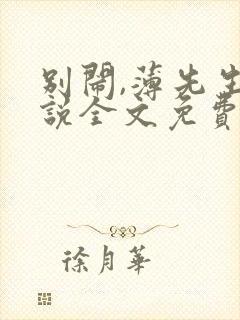 别闹,薄先生
說全文免費
徐月華